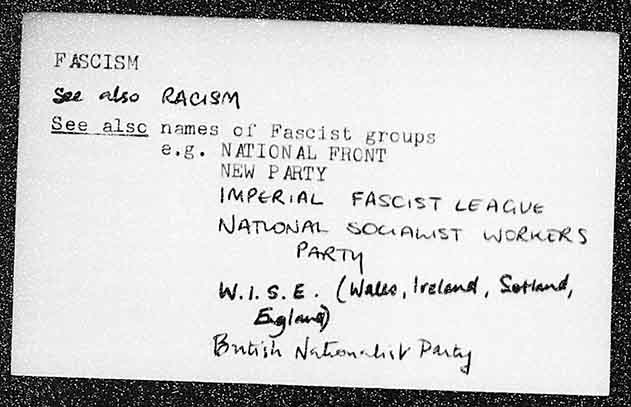 FASCISM
See also RACISM
See also names of Fascist groups
e.g. NATIONAL FRONT
NEW PARTY
IMPERIAL FASCIST LEAGUE
NATIONAL SOCIALIST WORKERS
PARTY
W.I.S.E. (Wales, Ireland, Scotland,
England)
British Nationalist Party